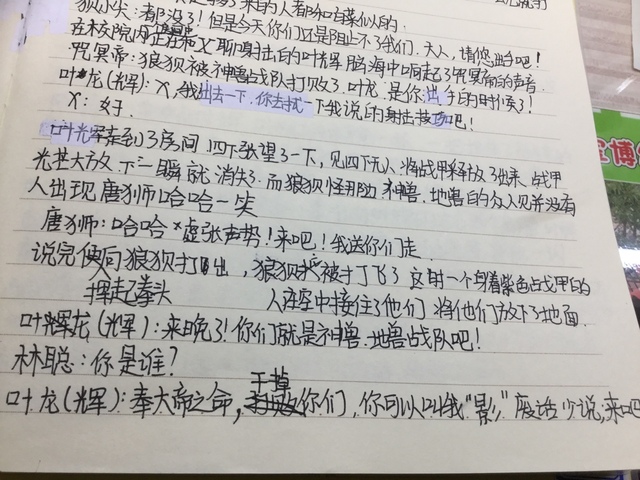 来的人都和白菜似的.
狈小尖:都没了!但是今天你们还是阻止不了我们.大人,请您出手吧!
在校院内正在和X聊射击的叶辉脑海中响起了咒冥帝的声音.
咒冥帝:狼狈被神兽战队打败了.叶龙.是你出手的时候了!
叶龙(辉):X,我出去一下.你去找一下我说的射击技巧吧!
X:好.
叶光辉走到了房间 四下张望了一下,见四下无人将战甲释放了出来.战甲
光芒大放 下一瞬就消失了.而狼狈怪那边 神兽.地兽的众人见并没有
人出现 唐狮哈哈一笑
唐狮:哈哈 虚张声势!来吧!我送你们走.
说完便向狼狈打出,狼狈被打飞了 这时一个身着紫色战甲的
挥起拳头 人凌空中接住了他们 将他们放下了地面.
叶辉龙(辉):来晚了!你们就是神兽.地兽战队吧!
林聪:你是谁?
干掉
叶龙(辉):奉大帝之命,你们,你可以叫我"影".废话少说,来吧
宝博